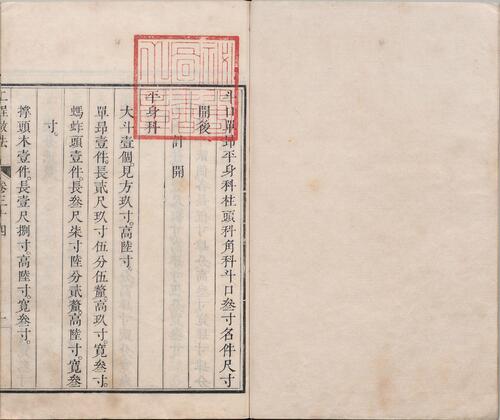 斗口單昂平身科柱頭科角科斗口叁寸各件尺寸
開後、
計開
平身科
大斗壹個。見方玖寸。高陸寸。
單昂壹件。長貳尺玖寸伍分伍釐。高玖寸。寬叁寸。
螞蚱頭壹件。長叁尺柒寸陸分貳釐。高陸寸。寬叁
寸。
撐頭木壹件。長壹尺捌寸。高陸寸。寬叁寸。
工程做法
卷三十四
一